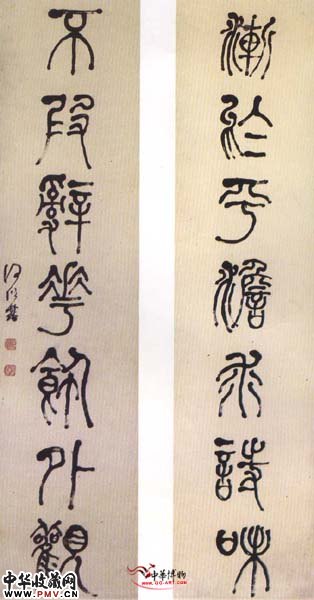 漸於平澹求詩味
不叚辭華飾外觀
何紹基
中华收藏网
www.PMV.CN
中華博物
GG-ART.COM